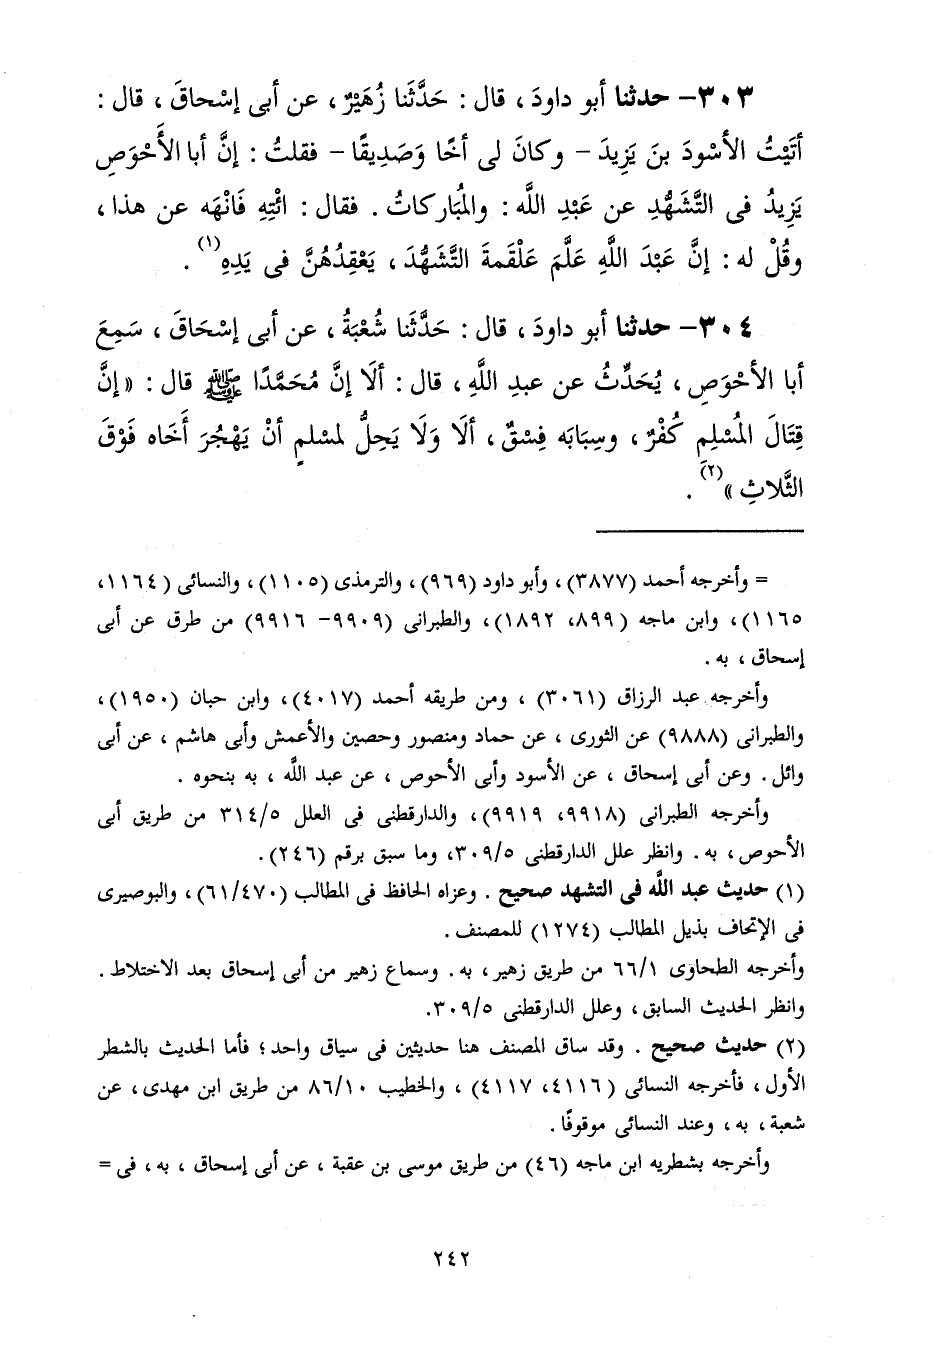 ٣٠٣- حدثنا أبو داودَ ، قال : حَدَّثَنا زُهَيْرٌ ، عن أبى إسْحاقَ ، قال :
أتَيْتُ الأسْودَ بنَ يَزِيدَ - وكانَ لى أخًا وَصَدِيقًا - فقلتُ : إنَّ أبا الأَحْوَصِ
يَزِيدُ فى التَّشَهُّدِ عن عَبْدِ اللَّه : والمُبَاركاتُ . فقال : ائْتِهِ فَانْهَه عن هذا ،
وقُلْ له : إنَّ عَبْدَ اللَّهِ عَلَّمَ عَلْقَمةَ التَّشَهُّدَ ، يَعْقِدُهُنَّ فى يَدِهِ(١) .
٣٠٤- حدثنا أبو داودَ ، قال : حَدَّثَنا شُعْبَةُ ، عن أبى إسْحَاقَ ، سَمِعَ
أبا الأحْوَصِ ، يُحَدِّثُ عن عبدِ اللَّهِ ، قال : ألَا إنَّ مُحَمَّدًا ﷺ قال : « إنَّ
قِتَالَ المُسْلِمِ كُفْرٌ ، وسِبَابَه فِسْقٌ ، ألَا وَلَا يَحِلُّ لمسْلمٍ أنْ يَهْجُرَ أَخَاه فَوْقَ
الثَّلاثِ »(٢) .
= وأخرجه أحمد (٣٨٧٧)، وأبو داود (٩٦٩)، والترمذى (١١٠٥)، والنسائى (١١٦٤،
١١٦٥)، وابن ماجه (٨٩٩، ١٨٩٢)، والطبرانى (٩٩٠٩- ٩٩١٦) من طرق عن أبى
إسحاق ، به .
وأخرجه عبد الرزاق (٣٠٦١) ، ومن طريقه أحمد (٤٠١٧)، وابن حبان (١٩٥٠)،
والطبرانى (٩٨٨٨) عن الثورى ، عن حماد ومنصور وحصين والأعمش وأبى هاشم ، عن أبى
وائل . وعن أبى إسحاق ، عن الأسود وأبى الأحوص ، عن عبد اللَّه ، به بنحوه .
وأخرجه الطبرانى (٩٩١٨، ٩٩١٩)، والدارقطنى فى العلل ٣١٤/٥ من طريق أبى
الأحوص ، به . وانظر علل الدارقطنى ٣٠٩/٥، وما سبق برقم (٢٤٦).
(١) حديث عبد اللَّه فى التشهد صحيح . وعزاه الحافظ فى المطالب (٦١/٤٧٠)، والبوصيرى
فى الإتحاف بذيل المطالب (١٢٧٤) للمصنف .
وأخرجه الطحاوى ٦٦/١ من طريق زهير ، به . وسماع زهير من أبى إسحاق بعد الاختلاط .
وانظر الحديث السابق ، وعلل الدارقطنى ٣٠٩/٥.
(٢) حديث صحيح . وقد ساق المصنف هنا حديثين فى سياق واحد ؛ فأما الحديث بالشطر
الأول ، فأخرجه النسائى (٤١١٦، ٤١١٧) ، والخطيب ٨٦/١٠ من طريق ابن مهدى ، عن
شعبة ، به ، وعند النسائى موقوفًا .
وأخرجه بشطريه ابن ماجه (٤٦) من طريق موسى بن عقبة ، عن أبى إسحاق ، به ، فى =
٢٤٢